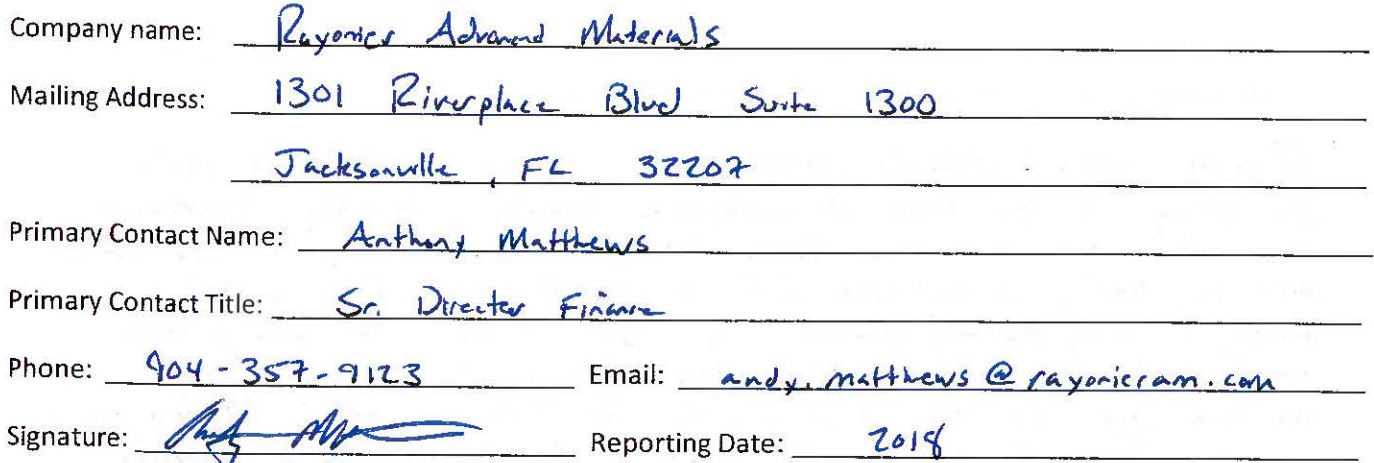 Company name: Rayonier Advanced Materials
Mailing Address: 1301 Riverplace Blvd Suite 1300
Jacksonville, FL 32207
Primary Contact Name: Anthony Matthews
Primary Contact Title: Sr. Director Finance
Phone: 904-357-9123 Email: andy.matthews@rayonierram.com
Signature: Reporting Date: 2018